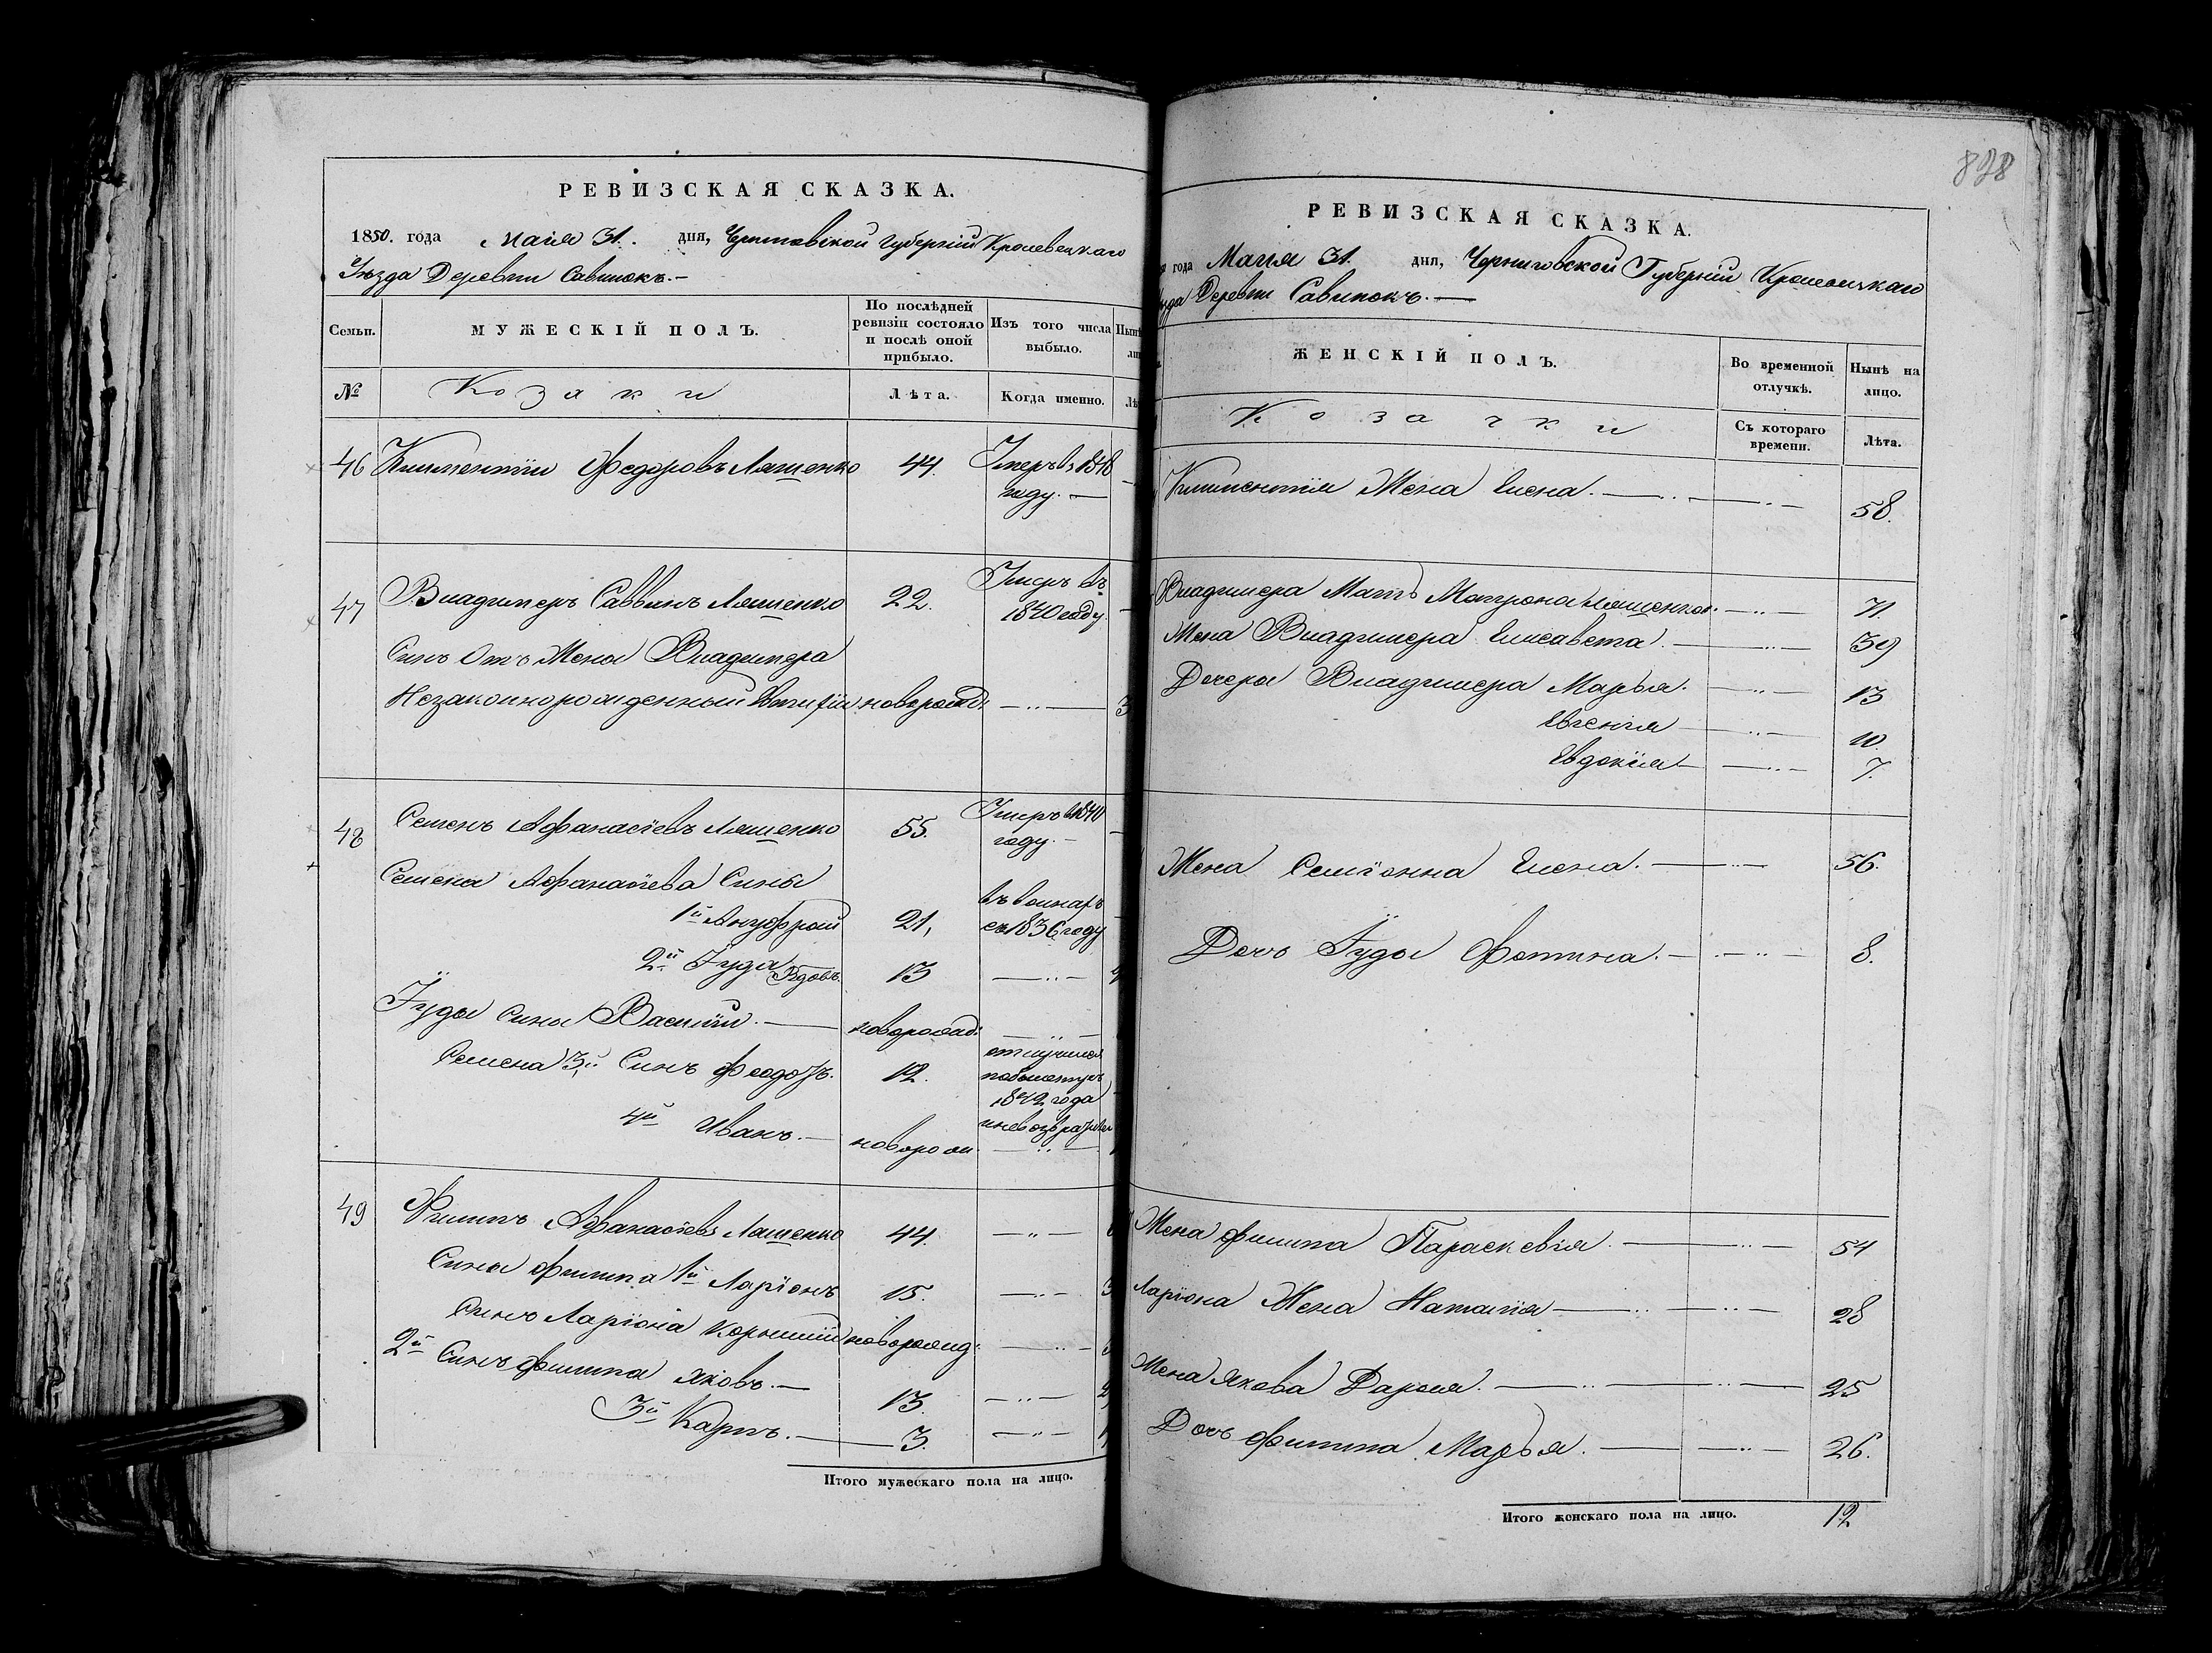 РЕВИЗСКАЯ СКАЗКА.
1850. года Маія 31. дня, Черниговской Губерніи Кролевецкаго
Уѣзда Деревни Савинокъ.—
Семьи.
МУЖЕСКІЙ ПОЛЪ.
По послѣдней ревизіи состояло и послѣ оной прибыло.
Изъ того числа выбыло.
№
Козаки
Лѣта.
Когда именно.
46 Климентій Федоровъ Ляшенко 44. Умеръ в 1848
году. —
47 Владимеръ Саввинъ Ляшенко 22. Умеръ въ
1840 году
Синъ Отъ Жены Владимера
Незаконнорожденный новорожд: — 3
48 Семенъ Афанасіевъ Ляшенко 55. Умеръ в 1840
году. —
Семена Афанасіева Сины
1й Ануфрій 21, въ воинахъ
съ 1836 году
2й Іуда Вдовъ. 13 —
Іуды сина Василій. — новорожд:
Семена 3й Синъ Федоръ. 12. отлучился
1842 года
4й Иванъ. — новорож —
49 Филипъ Афанасіевъ Ляшенко 44. —
Сины Филипа 1й Ларіонъ 15. — 3
Синъ Ларіона Корнилій новорожд: —
2й Синъ Филипа Яковъ. — 13. — 2
3й Карпъ. — 3. —
Итого мужескаго пола на лицо.
828
РЕВИЗСКАЯ СКАЗКА.
года Маія 31. дня, Черниговской Губерніи Кролевецкаго
Деревни Савинокъ. —
ЖЕНСКІЙ ПОЛЪ.
Во временной отлучкѣ.
Нынѣ на лицо.
Козачки
Съ котораго времени.
Лѣта.
Климентія Жена Елена. — 58.
Владимера Мать Матрона Ляшенкова. — 71.
Жена Владимера Елисавета. — 39
Дочеры Владимера Марья. — 13
Евгенія — 10.
Евдокія — 7.
Жена Семіонна Елена. — 56.
Дочь Іуды Фотина. — 8.
Жена Филипа Параскевія. — 54
Ларіона Жена Наталія — 28
Жена Якова Дарья. — 25
Дочь Филипа Марья. — 26.
Итого женскаго пола на лицо. 12